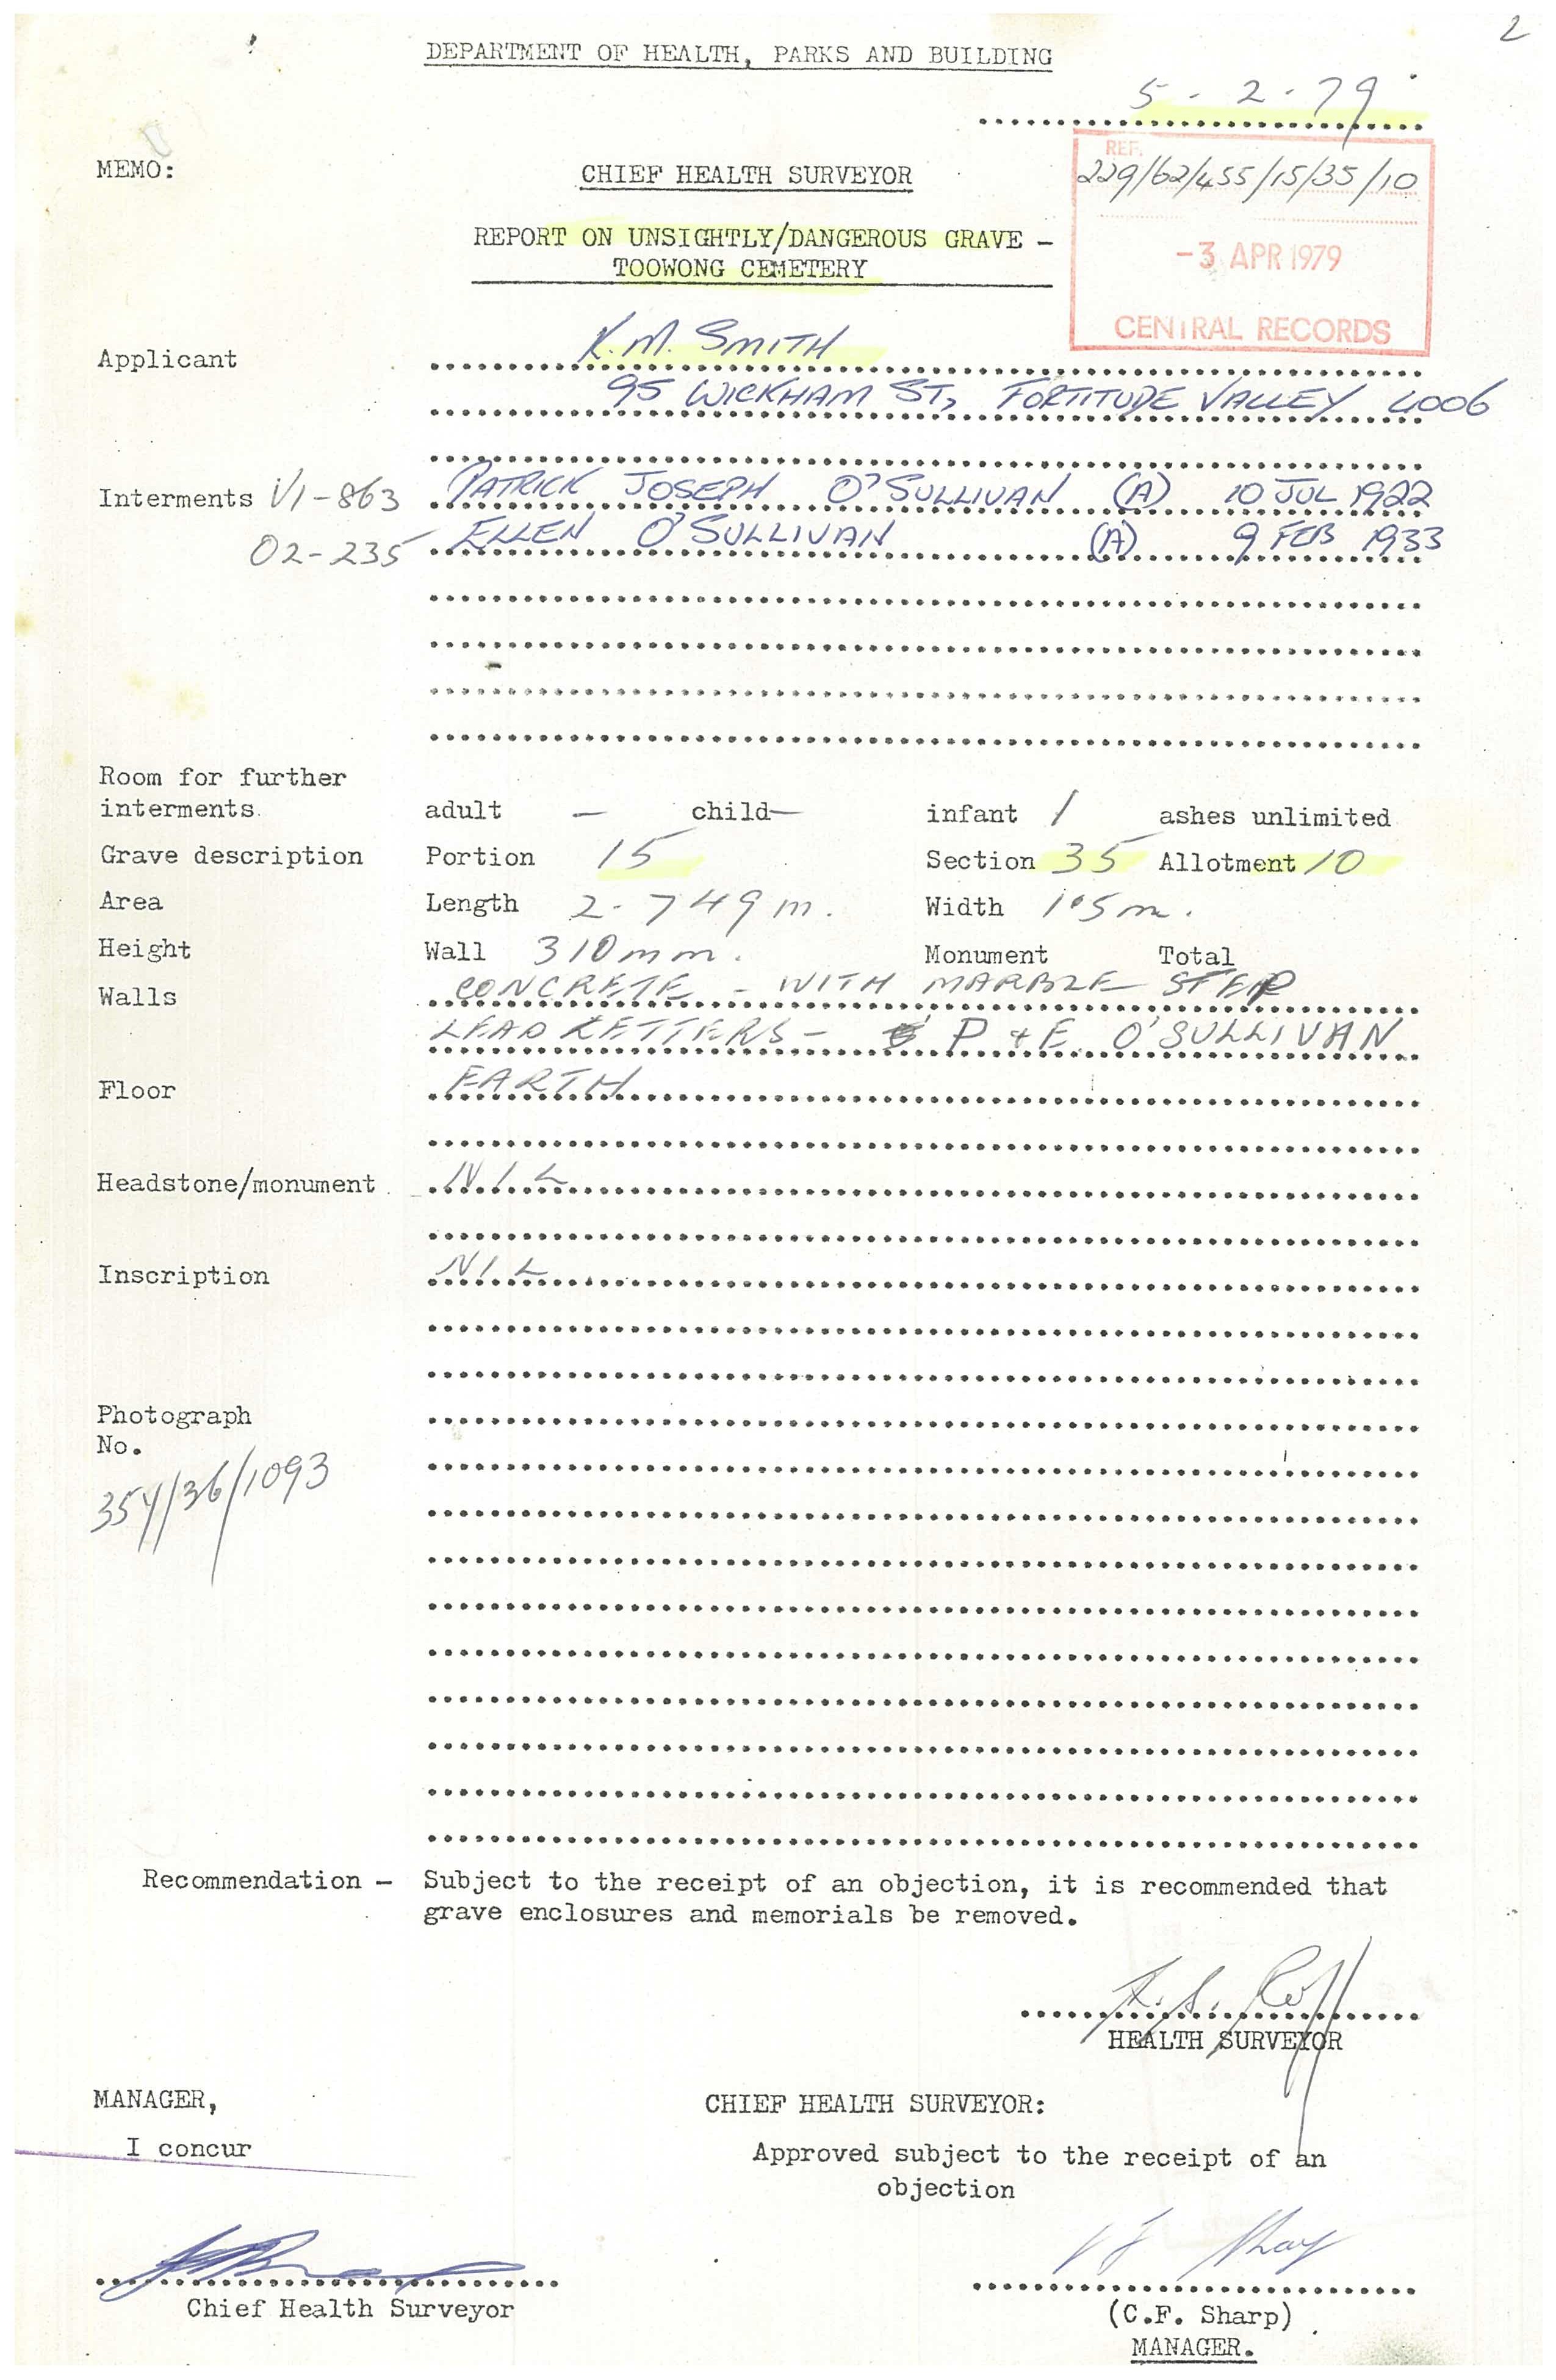 2
DEPARTMENT OF HEALTH, PARKS AND BUILDING
5 - 2 - 79
MEMO:
CHIEF HEALTH SURVEYOR
REF.
229/62/455/15/35/10
REPORT ON UNSIGHTLY/DANGEROUS GRAVE -
TOOWONG CEMETERY
-3 APR 1979
CENTRAL RECORDS
Applicant K.M. SMITH
95 WICKHAM ST, FORTITUDE VALLEY 4006
Interments V1-863 PATRICK JOSEPH O'SULLIVAN (A) 10 JUL 1922
02-235 ELLEN O'SULLIVAN (A) 9 FEB 1933
Room for further
interments. adult - child - infant 1 ashes unlimited
Grave description Portion 15 Section 35 Allotment 10
Area Length 2.749 m. Width 1.5 m.
Height Wall 310 mm. Monument Total
Walls CONCRETE - WITH MARBLE STEP
LEAD LETTERS - P & E O'SULLIVAN
Floor EARTH
Headstone/monument NIL
Inscription NIL
Photograph
No.
354/36/1093
Recommendation - Subject to the receipt of an objection, it is recommended that
grave enclosures and memorials be removed.
HEALTH SURVEYOR
MANAGER, CHIEF HEALTH SURVEYOR:
I concur
Approved subject to the receipt of an
objection
Chief Health Surveyor
(C.F. Sharp)
MANAGER.